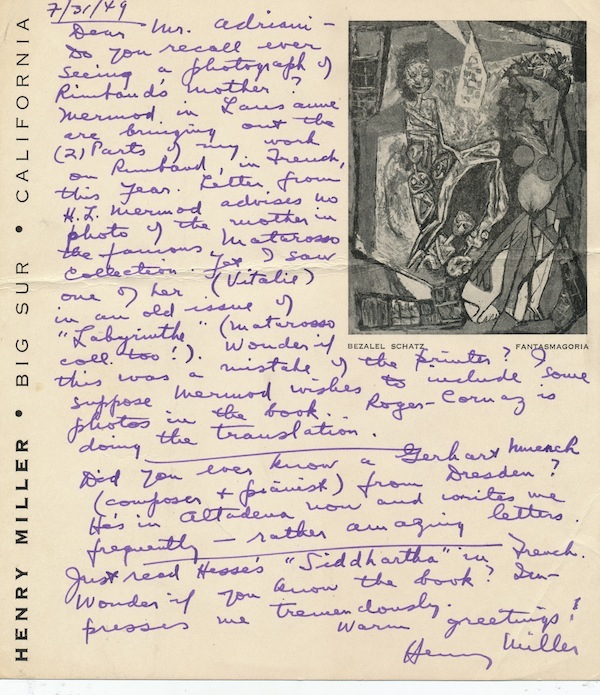 HENRY MILLER • BIG SUR • CALIFORNIA
7/31/49
Dear Mr. Adriani –
Do you recall ever
seeing a photograph of
Rimbaud's mother?
Mermod in Lausanne
are bringing out the
(2) Parts of my work
on Rimbaud, in French,
this year. Letter from
H.L. Mermod advises no
photo of the mother in
the famous Matarosso
Collection. Yet I saw
one of her (Vitalie)
in an old issue of
"Labyrinthe" (Matarosso
coll. too!). Wonder if
this was a mistake of the printer? I
suppose Mermod wishes to include some
photos in the book. Roger-Cornaz is
doing the translation.
BEZALEL SCHATZ
FANTASMAGORIA
Did you ever know a Gerhart Muench
(composer + pianist) from Dresden?
He's in Altadena now and writes me
frequently – rather amazing letters.
Just read Hesse's "Siddhartha" in French.
Wonder if you know the book? Im-
presses me tremendously.
Warm greetings!
Henry Miller